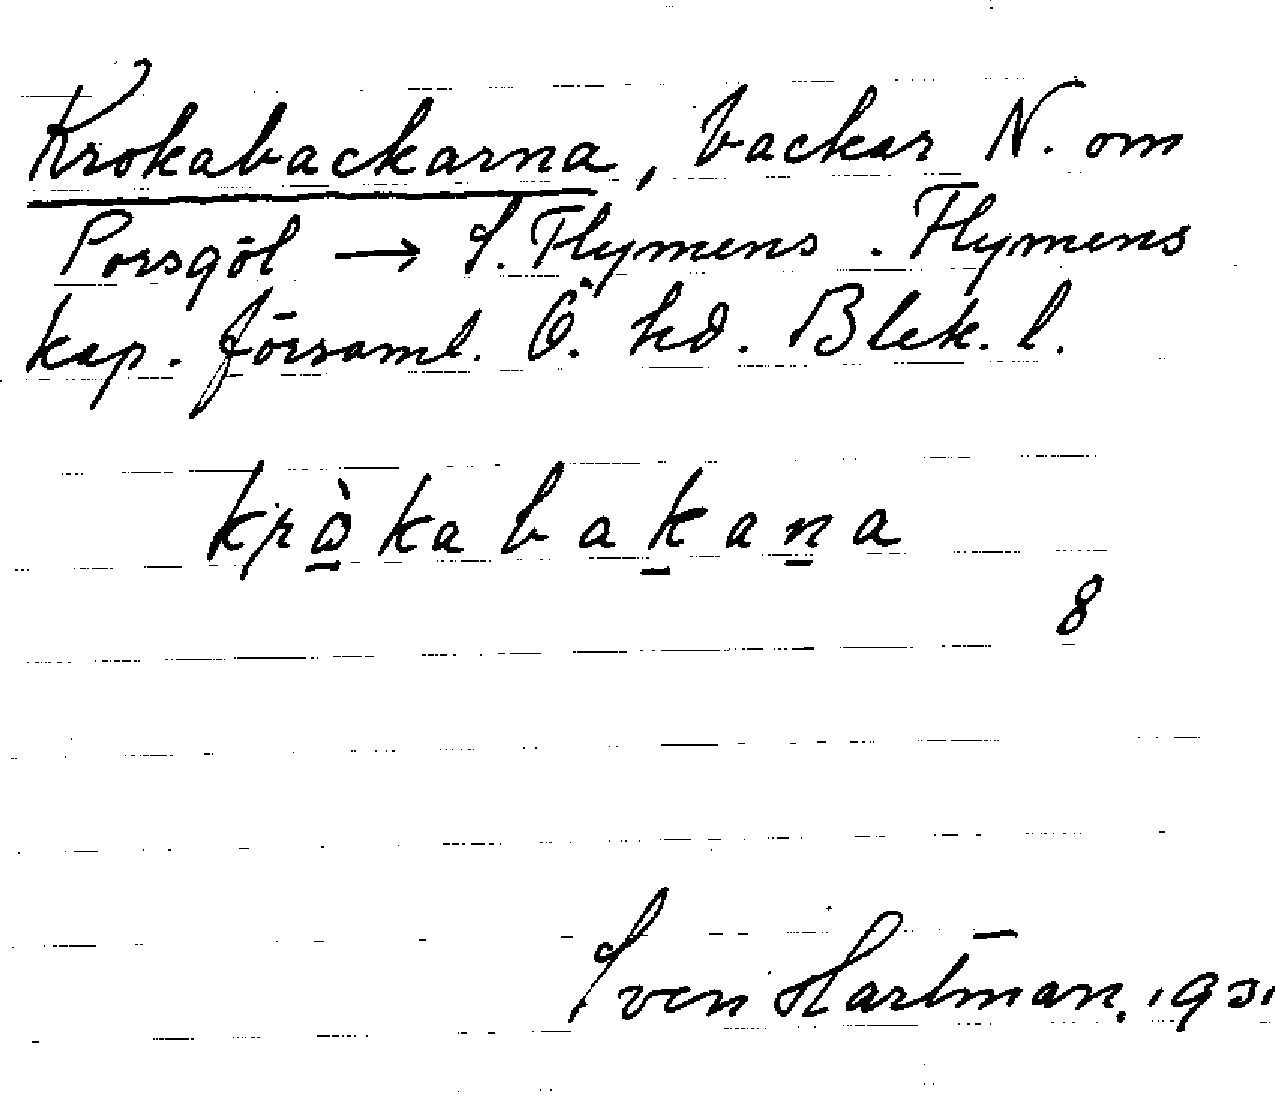 Krokabackarna, backar N. om
Porsgöl → S. Flymens. Flymens
kap. församl. Ö. hd. Blek. l.
krò̱kabak̲an̲a
8
Sven Hartman. 1931